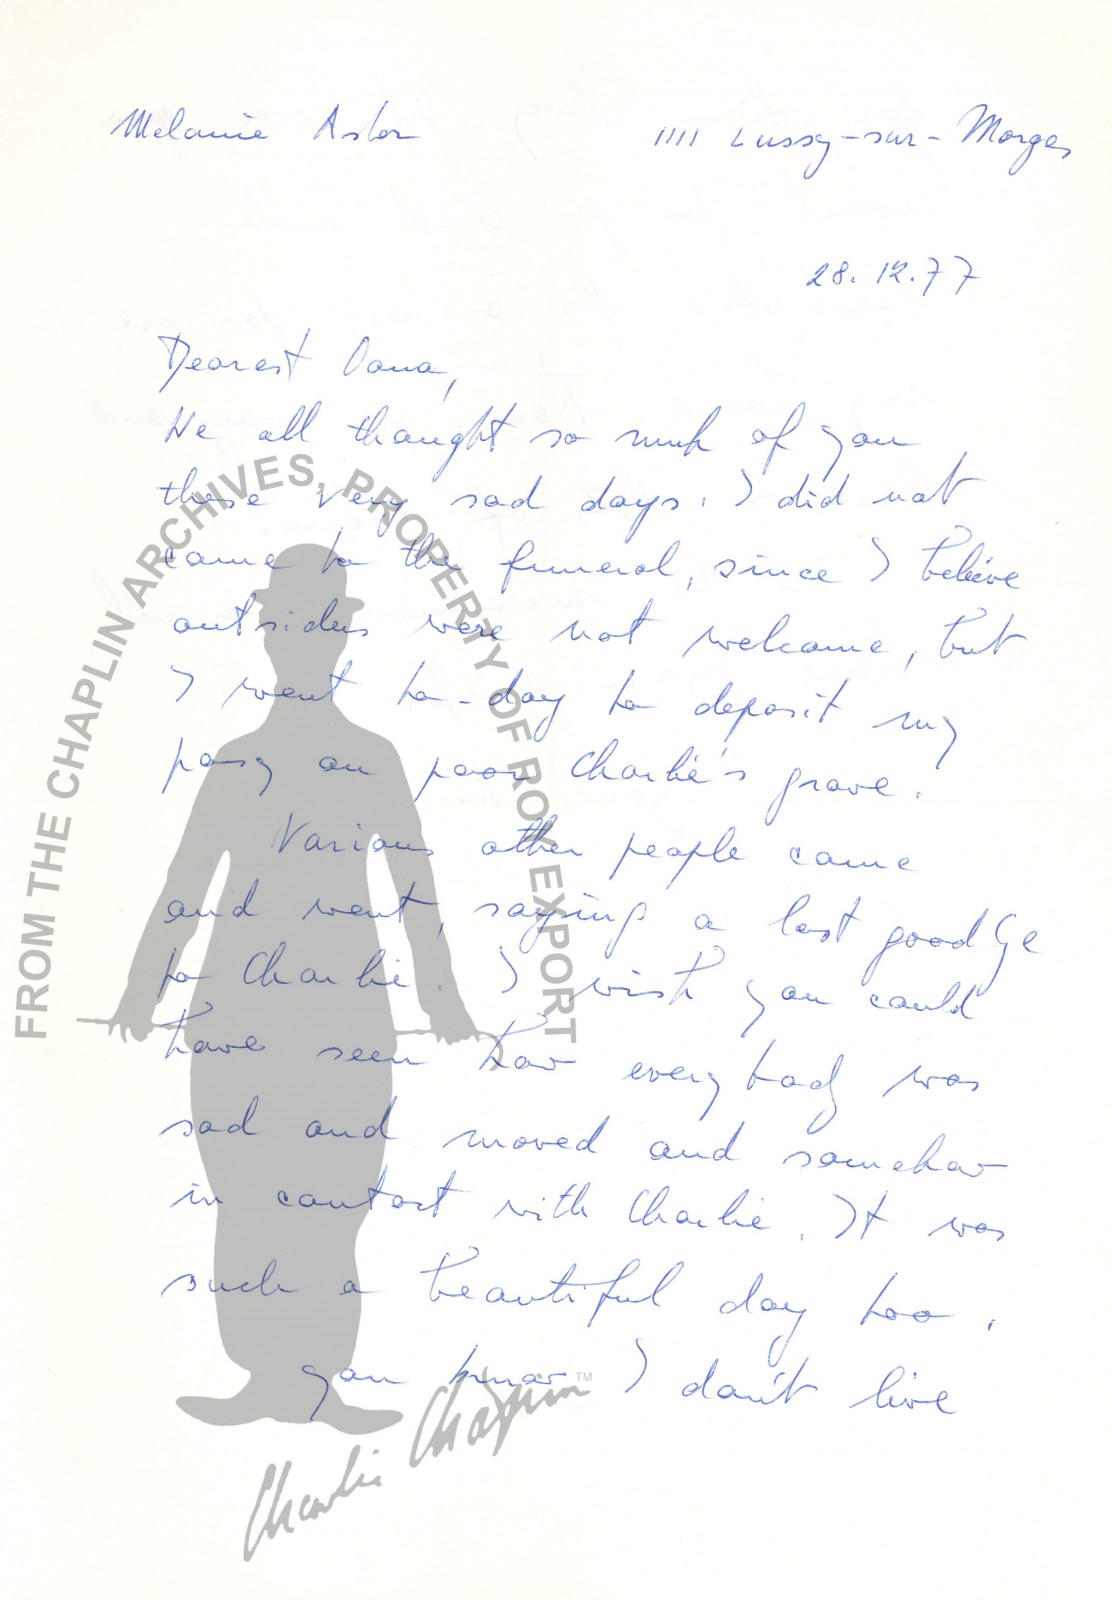 Melanie Aslan
1111 Lussy-sur-Morges
28.12.77
Dearest Oona,
We all thought so much of you
these very sad days. I did not
come to the funeral, since I believe
outsiders were not welcome, but
I went to-day to deposit my
posy on poor Charlie's grave.
Various other people came
and went, saying a last goodbye
to Charlie. I wish you could
have seen how everybody was
sad and moved and somehow
in contact with Charlie. It was
such a beautiful day too.
You know I don't live
FROM THE CHAPLIN ARCHIVES, PROPERTY OF ROY EXPORT
Charlie Chaplin™